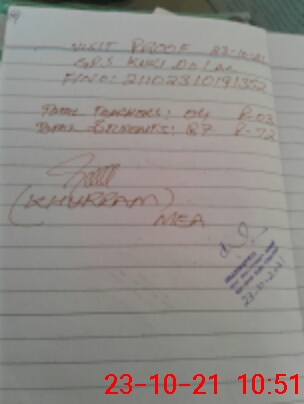 VISIT PROOF 23-10-21
GPS KHUI DALAL
F/NO: 21102310191352
TOTAL TEACHERS: 04 P-03
TOTAL STUDENTS: 87 P-72
(KHURRAM)
MEA
23-10-2021
23-10-21 10:51